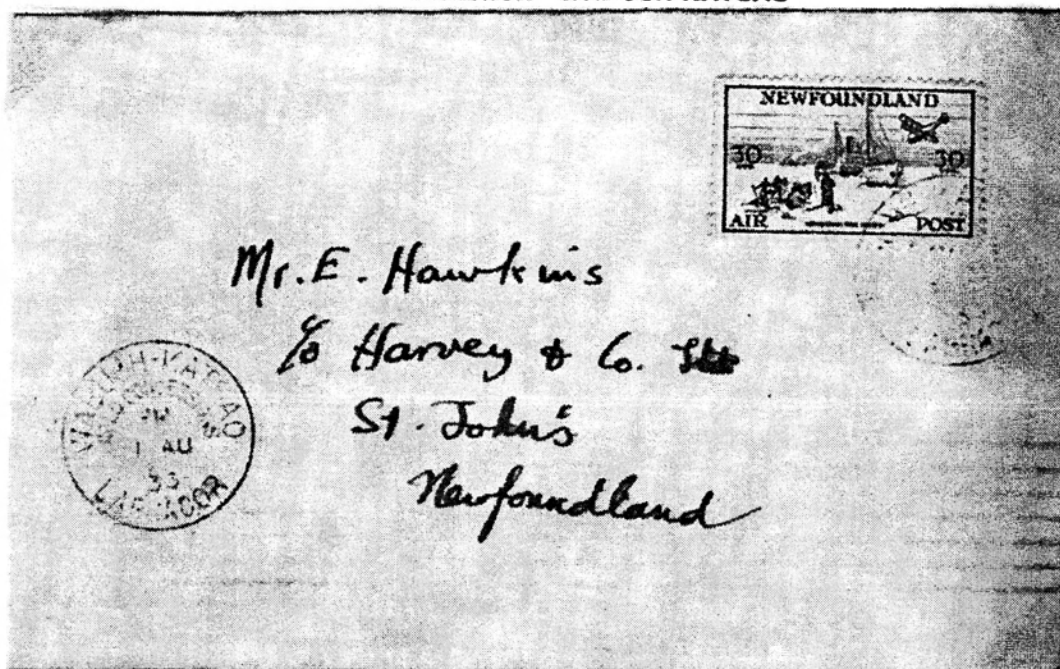 NEWFOUNDLAND
30 30
AIR POST
Mr. E. Hawkins
c/o Harvey & Co.
St. John's
Newfoundland
1 AU
33
LABRADOR